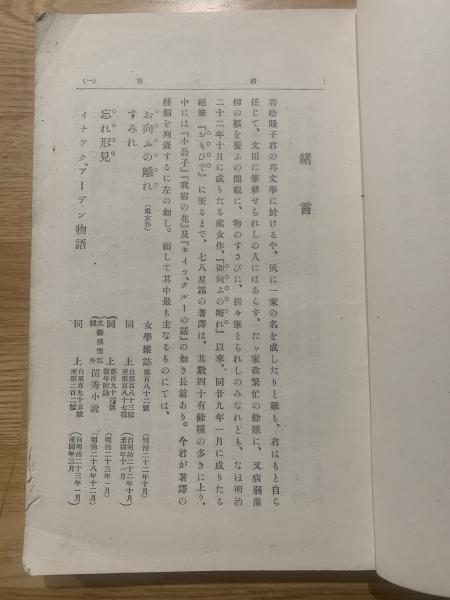 緒言
(一)
緒言
若松賤子君の邦文學に於けるや、夙に一家の名を成したりと雖も、君はもと自ら
任じて、文田に筆耕せられしの人にはあらず、たゞ家政繁忙の餘隙に、又病弱蒲
柳の軀を養ふの閑暇に、物のすさびに、折々筆とられしのみなれども、なほ明治
二十二年十月に成りたる處女作、『御向ふの離れ』以來、同廿九年一月に成りたる
絕筆『おもひで』に至るまで、七八星霜の著譯は、其數四十有餘種の多きに上り、
中には『小公子』『我宿の花』及『セイラ、クルーの話』の如き長篇あり。今君が著譯の
種類を列擧するに左の如し。而して其中最も主なるものにては、
お向ふの離れ(處女作) 女學雜誌第百八十二號(明治二十二年十月)
すみれ 同上自第百八十三號至第百八十七號(自明治二十二年十月至同年十一月)
忘れ形見 同上第百九十四號新年附錄(明治二十三年一月)
文藝俱樂部號外閨秀小說(明治二十八年十二月)
イナック、アーデン物語 同上自第百九十五號至第二百二號(自明治二十三年一月至同年三月)